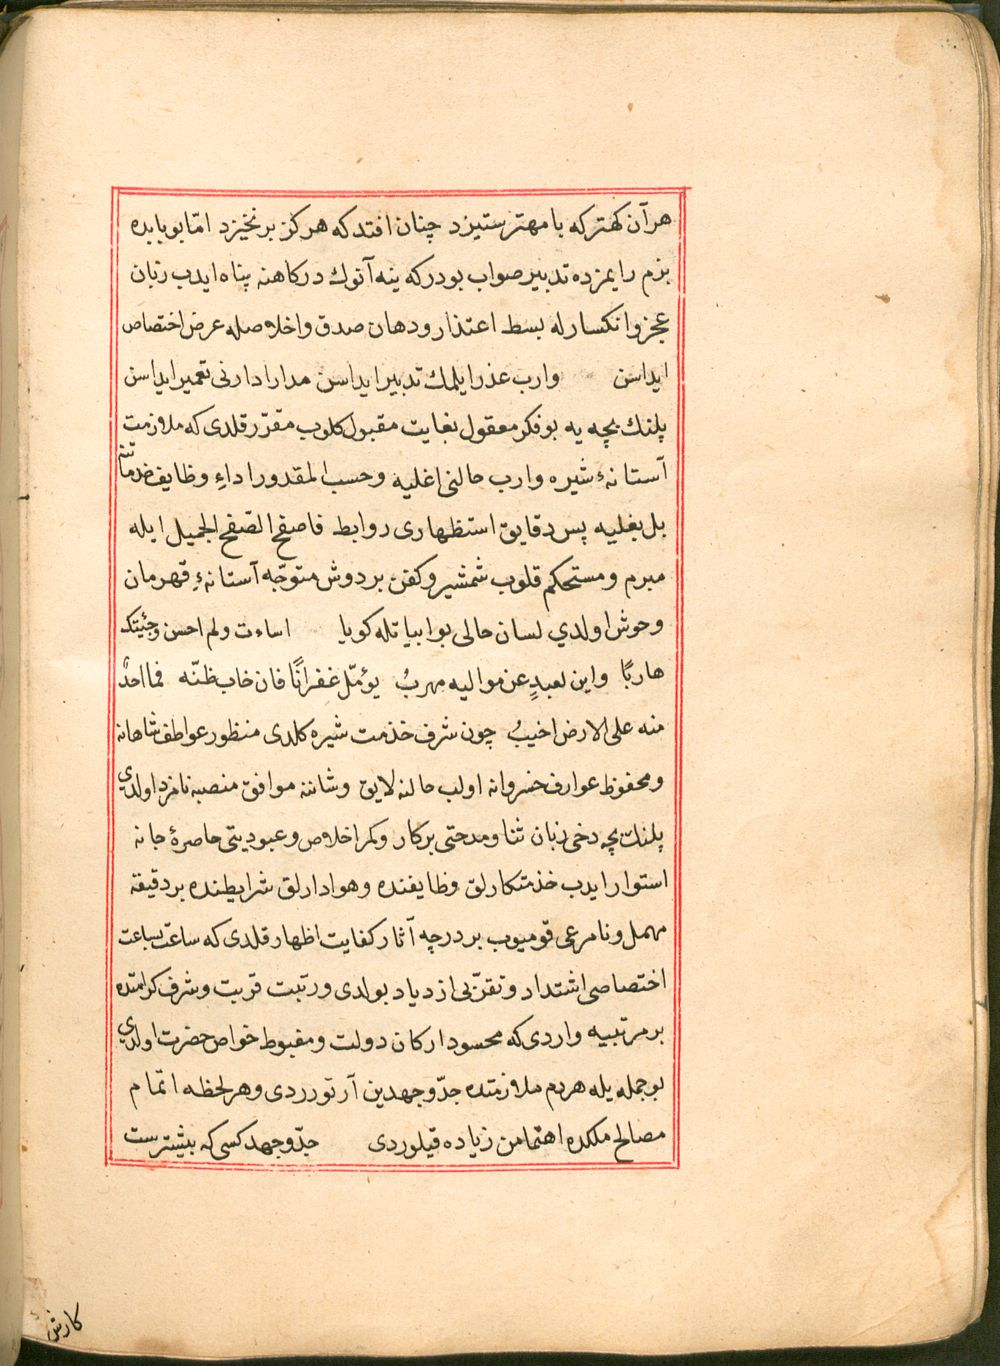 هر آن كهتر كه با مهتر ستيزد چنان افتد كه هركز بر نخيزد امّا بو بابده
بزم رايمزده تدبير صواب بودر كه ينه آنوك دركاهنه پناه ايدب زبان
عجز وانكسارله بسط اعتذار ودهان صدق واخلاصله عرض اختصاص
ايداسن وارب عذر ايلمك تدبير ايداسن مدارا دارنى تعمير ايداسن
پلنك بچه يه بو فكر معقول بغايت مقبول كلوب مقرّر قلدى كه ملازمت
آستانهٔ شيره وارب حالنى اغليه وحسب المقدور اداءِ وظايف خدماتنه
بل بغليه پس دقايق استظهارى روابط فاصفح الصّفح الجميل ايله
مبرم ومستحكم قلوب شمشير وكفن بر دوش متوجّه آستانهٔ قهرمان
وحوش اولدي لسان حالى بو ابياتله كويا اساءت ولم احسن وجئتك
هاربًا واين لعبدٍ عن مواليه مهربُ يؤمّل غفرانًا فان خاب ظنّه فما احدٌ
منه على الارض اخيبُ چون شرف خذمت شيره كلدى منظور عواطف شاهانه
ومحفوظ عوارف خسروانه اولب حالنه لايق وشاننه موافق منصبه نامزد اولدي
پلنك بچه دخى زبان ثنا ومدحتى بركار وكمر اخلاص وعبوديتى حاصرهٔ جانه
استوار ايدب خذمتكارلق وظايفنده وهوادارلق شرايطنده بر دقيقه
مهمل ونامرعى قوميوب بر درجه آثار كفايت اظهار قلدى كه ساعت بساعت
اختصاصى اشتداد وتقرّبى ازدياد بولدى ورتبت قربت وشرف كرامتده
بر مرتبيه واردى كه محسود اركان دولت ومغبوط خواص حضرت اولدي
بو جمله يله هردم ملازمتده جدّ وجهدين آرتوردى وهر لحظه اتمام
مصالح ملكده اهتمامن زياده قيلوردى جدّ وجهد كسى كه بيشترست
كارش